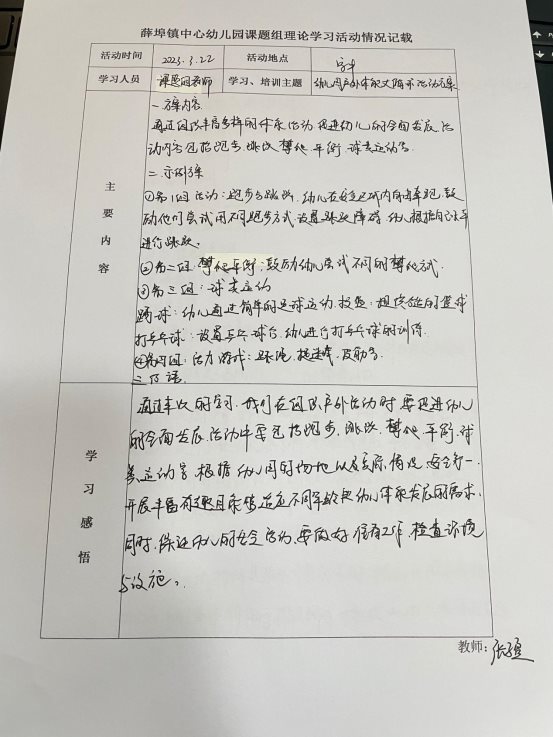 薛埠镇中心幼儿园课题组理论学习活动情况记载
活动时间 2023.3.22 活动地点
学习人员 课题组老师 学习、培训主题 幼儿园户外体能大循环活动方案
主要内容
一.方案内容
通过组织丰富多样的体系活动,促进幼儿的全面发展,活
动内容包括跑步、跳跃、攀爬、平衡、球类运动等
二.示例方案
①第1组活动:跑步与跳跃.幼儿在安全区域内自由奔跑,鼓
励他们尝试用不同跑步方式.设置跳跃障碍,幼儿根据自己水平
进行跳跃。
②第二组:攀爬平衡:鼓励幼儿尝试不同的攀爬方式.
③第三组:球类运动
踢球:幼儿通过简单的足球运动,投篮:提供低的篮球
打乒乓球:设置乒乓球台,幼儿进行打乒乓球的训练
④第四组:活力游戏:跳绳,
三.结语
学习感悟
通过本次的学习,我们在组织户外活动时要促进幼儿
的全面发展,活动中要包括跑步、跳跃、攀爬、平衡、球
类运动等,根据幼儿园的场地以及实际情况,安全第一.
开展丰富有趣且能够适应不同年龄段幼儿体能发展的需求,
同时,保证幼儿的安全活动,要做好保育工作,检查环境
与设施。
教师:张